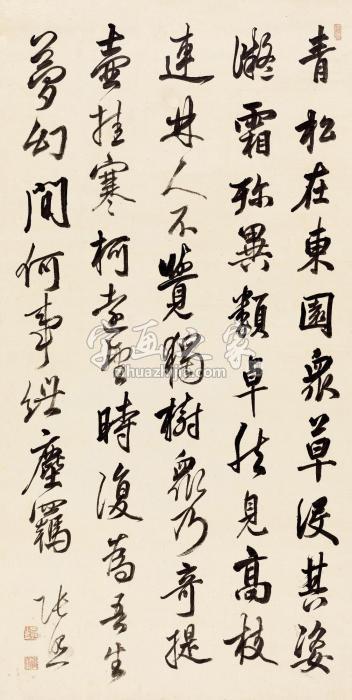 青松在東園衆草没其姿
凝霜殄異類卓然見高枝
連林人不覺獨樹衆乃奇提
壷挂寒柯遠望時復為吾生
夢幻間何事紲塵羈
張照
字画之家
zhuazhijia.com